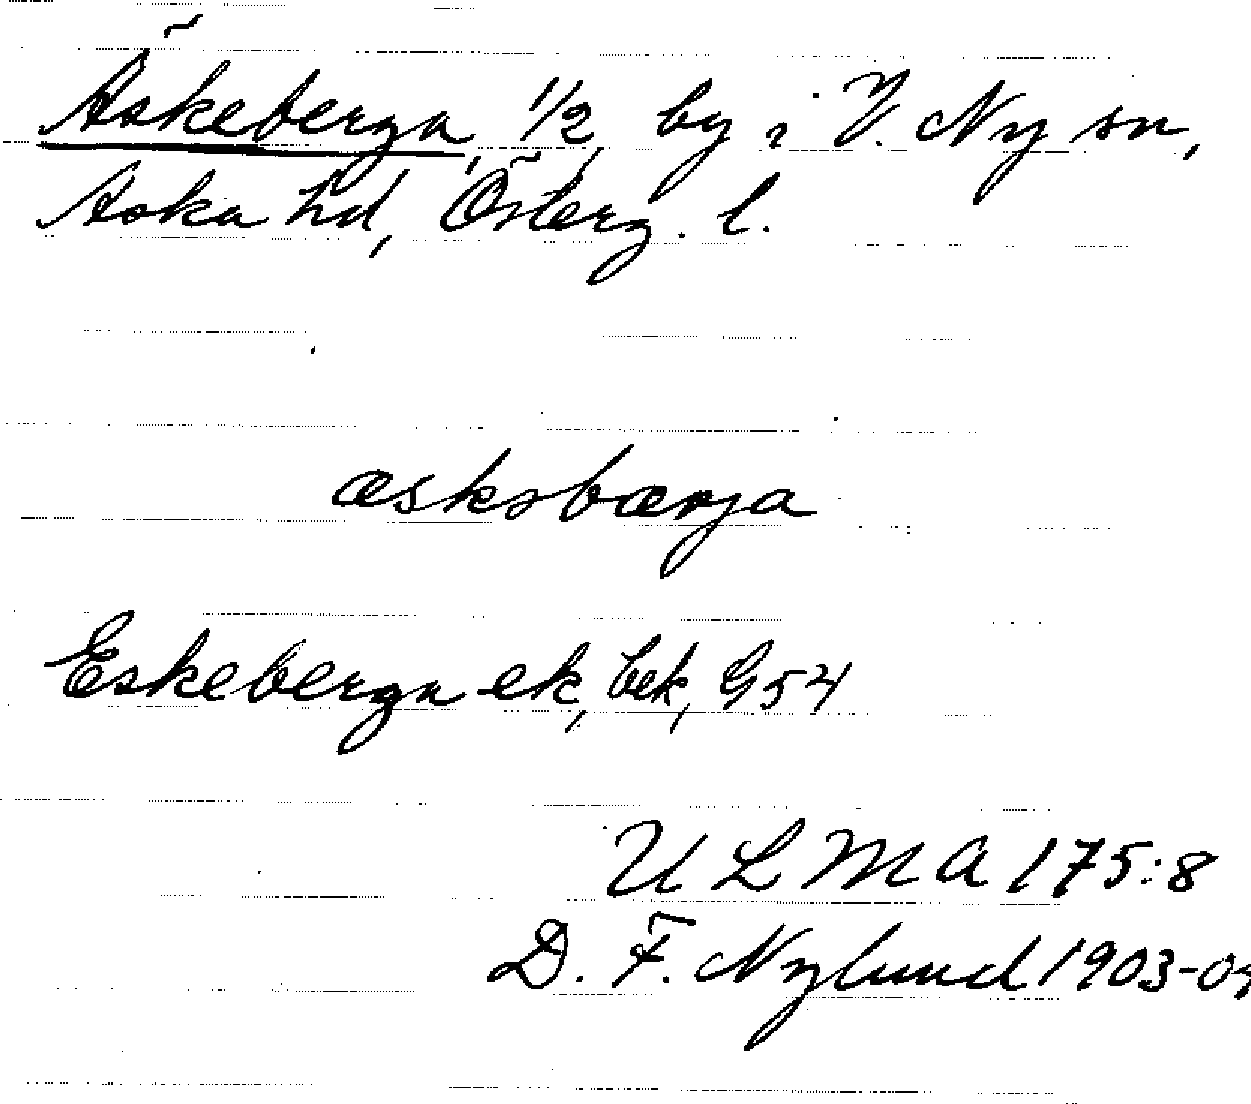 Äskeberga, 1/2, by i V. Ny sn,
Aska hd, Österg. l.
æskəbærja
Eskeberga ek, bek, G54
ULMA 175:8
D. F. Nylund 1903-04